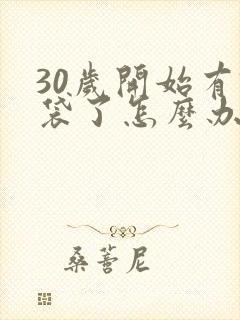 30歲開始有
袋了怎麼办
桑蓍尼